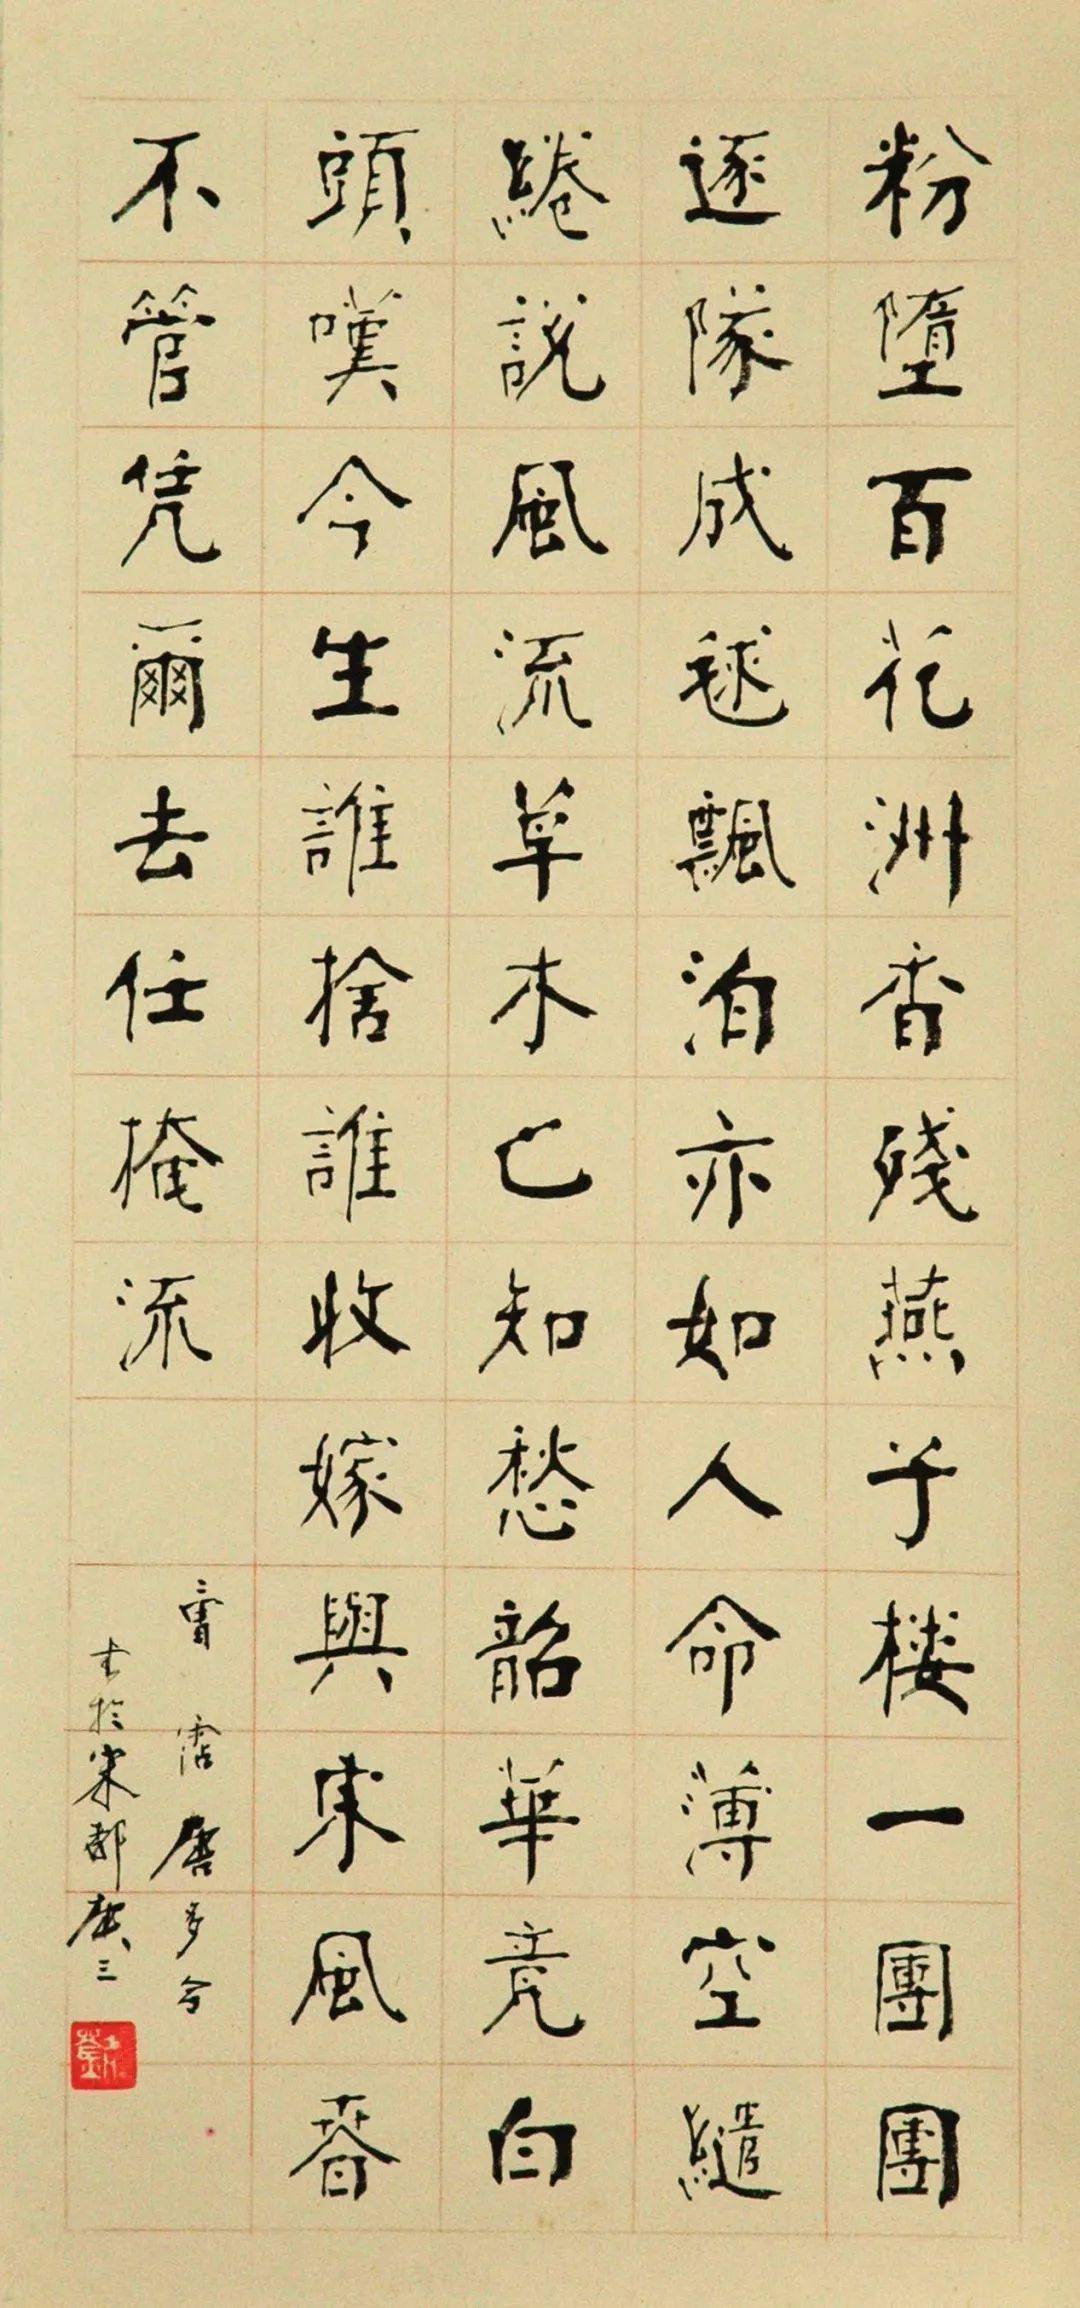 粉墮百花洲香殘燕子楼一團團
逐隊成毬飄泊亦如人命薄空繾
綣説風流草木也知愁韶華竟白
頭嘆今生誰捨誰收嫁與東風春
不管凭爾去任掩流
曹霑唐多令
书於宋都